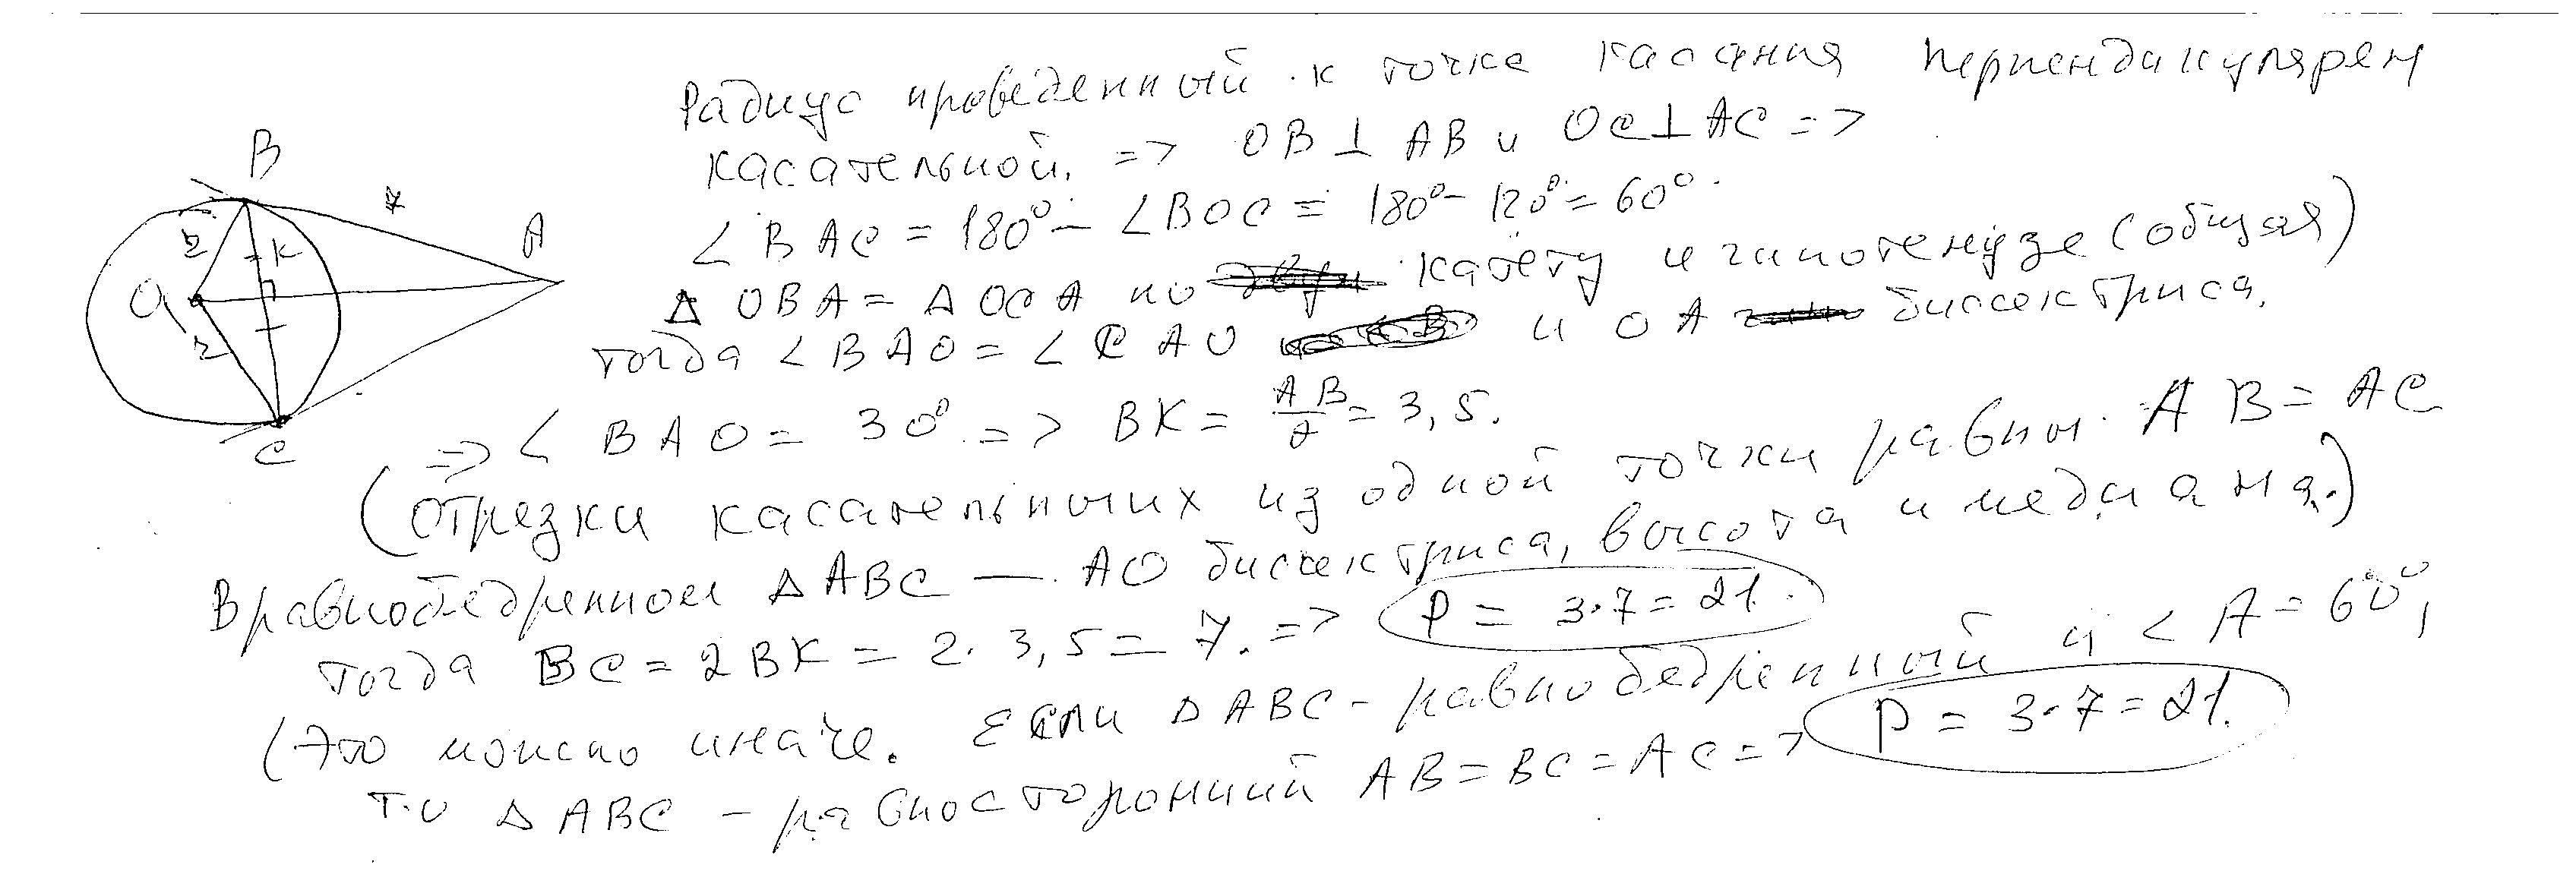 Радиус проведенный к точке касания перпендикулярен
касательной. => OB ⊥ AB и OC ⊥ AC =>
∠BAC = 180° - ∠BOC = 180° - 120° = 60°.
Δ OBA = Δ OCA по катету и гипотенузе (общая)
тогда ∠BAO = ∠CAO и OA биссектриса.
=> ∠BAO = 30° => BK = AB/2 = 3,5.
(отрезки касательных из одной точки равны. AB = AC
В равнобедренном ΔABC — AO биссектриса, высота и медиана.)
тогда BC = 2BK = 2·3,5 = 7. => P = 3·7 = 21.
(Это можно иначе. Если ΔABC - равнобедренный и ∠A = 60°,
то ΔABC - равносторонний AB = BC = AC => P = 3·7 = 21.
B
7
A
r
K
O
r
C